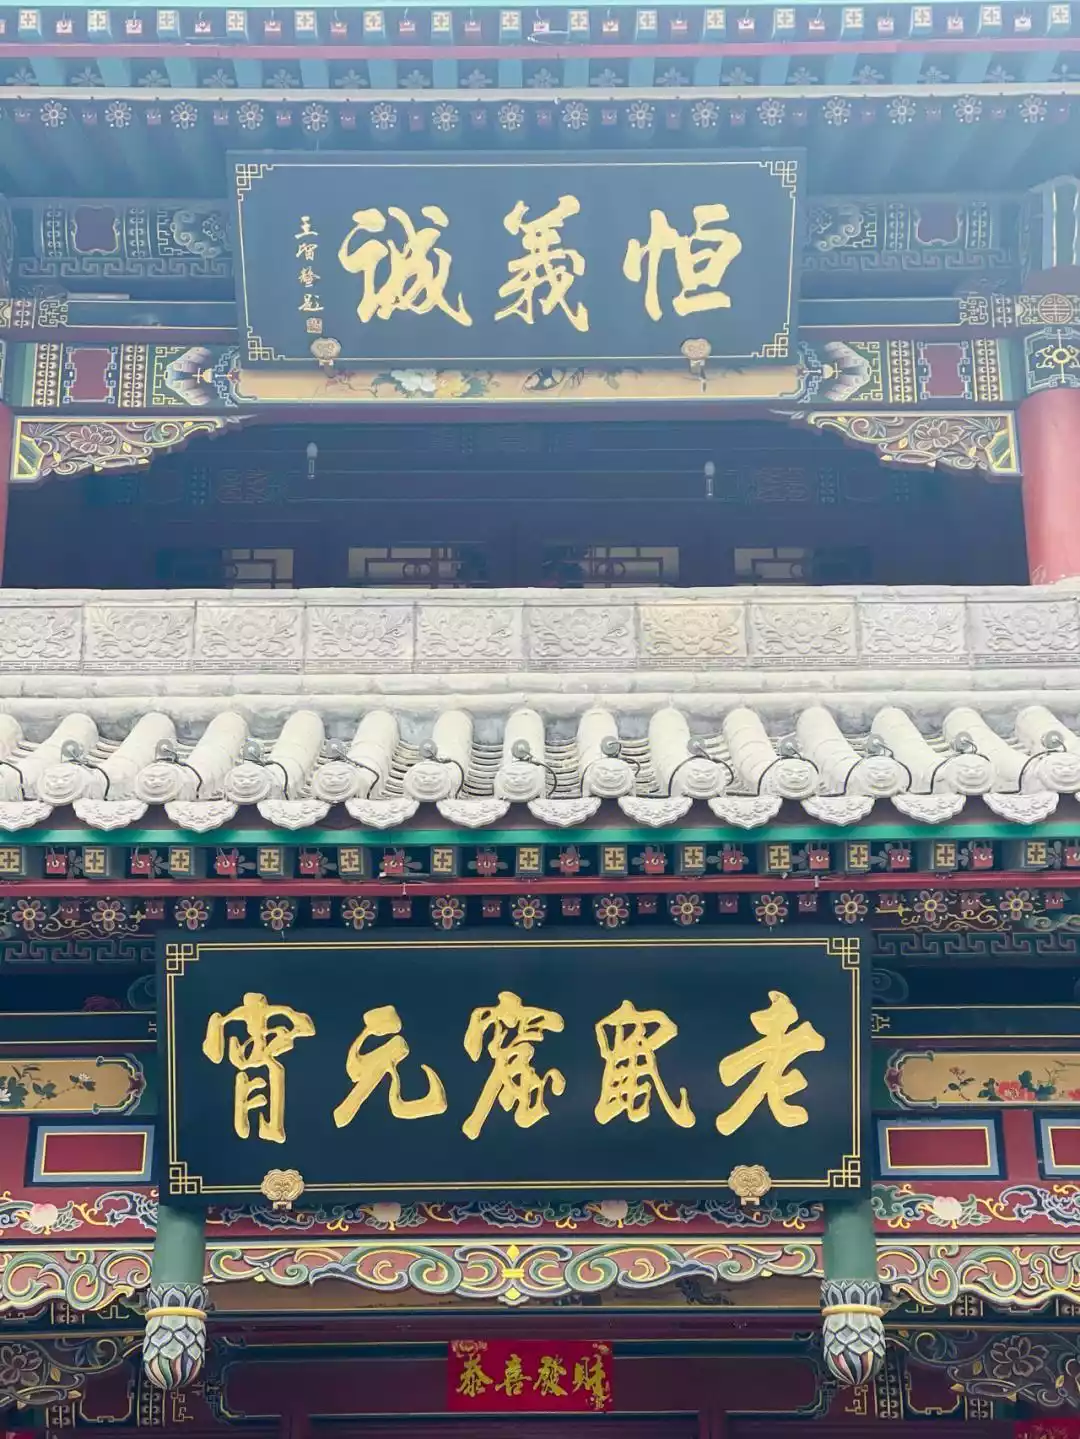 恒義誠
王留鰲題
老鼠窟元宵
恭喜發財